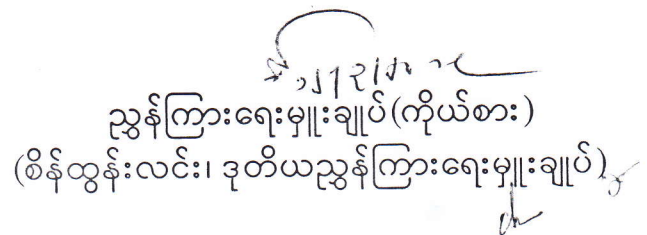 ညွှန်ကြားရေးမှူးချုပ်(ကိုယ်စား)
(စိန်ထွန်းလင်း၊ ဒုတိယညွှန်ကြားရေးမှူးချုပ်)